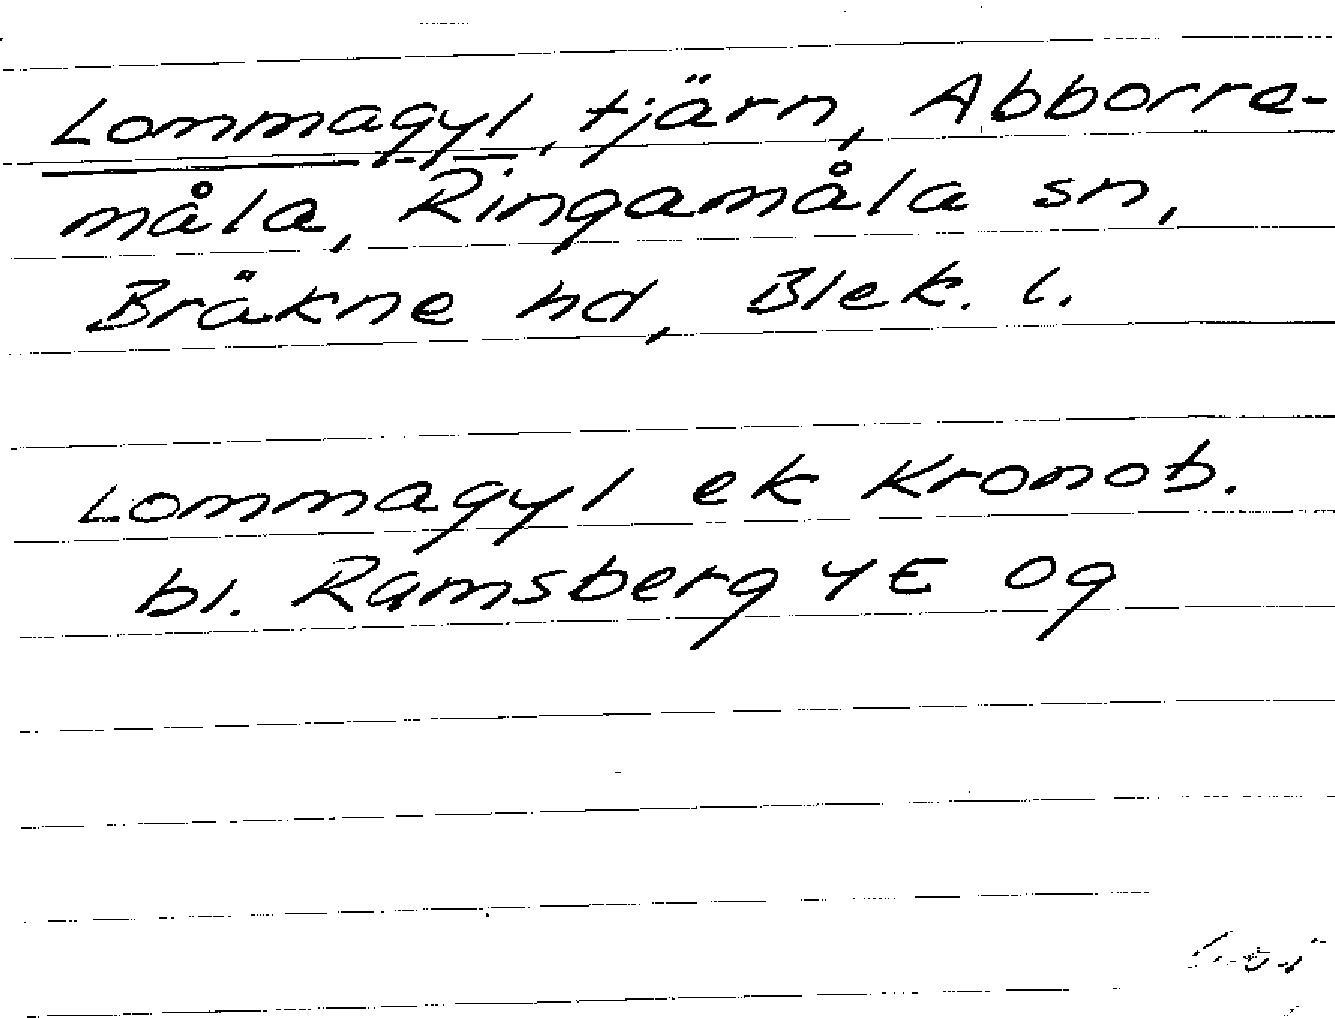 Lommagyl, tjärn, Abborre-
måla, Ringamåla sn,
Bräkne hd, Blek. l.
Lommagyl ek Kronob.
bl. Ramsberg 4E Og